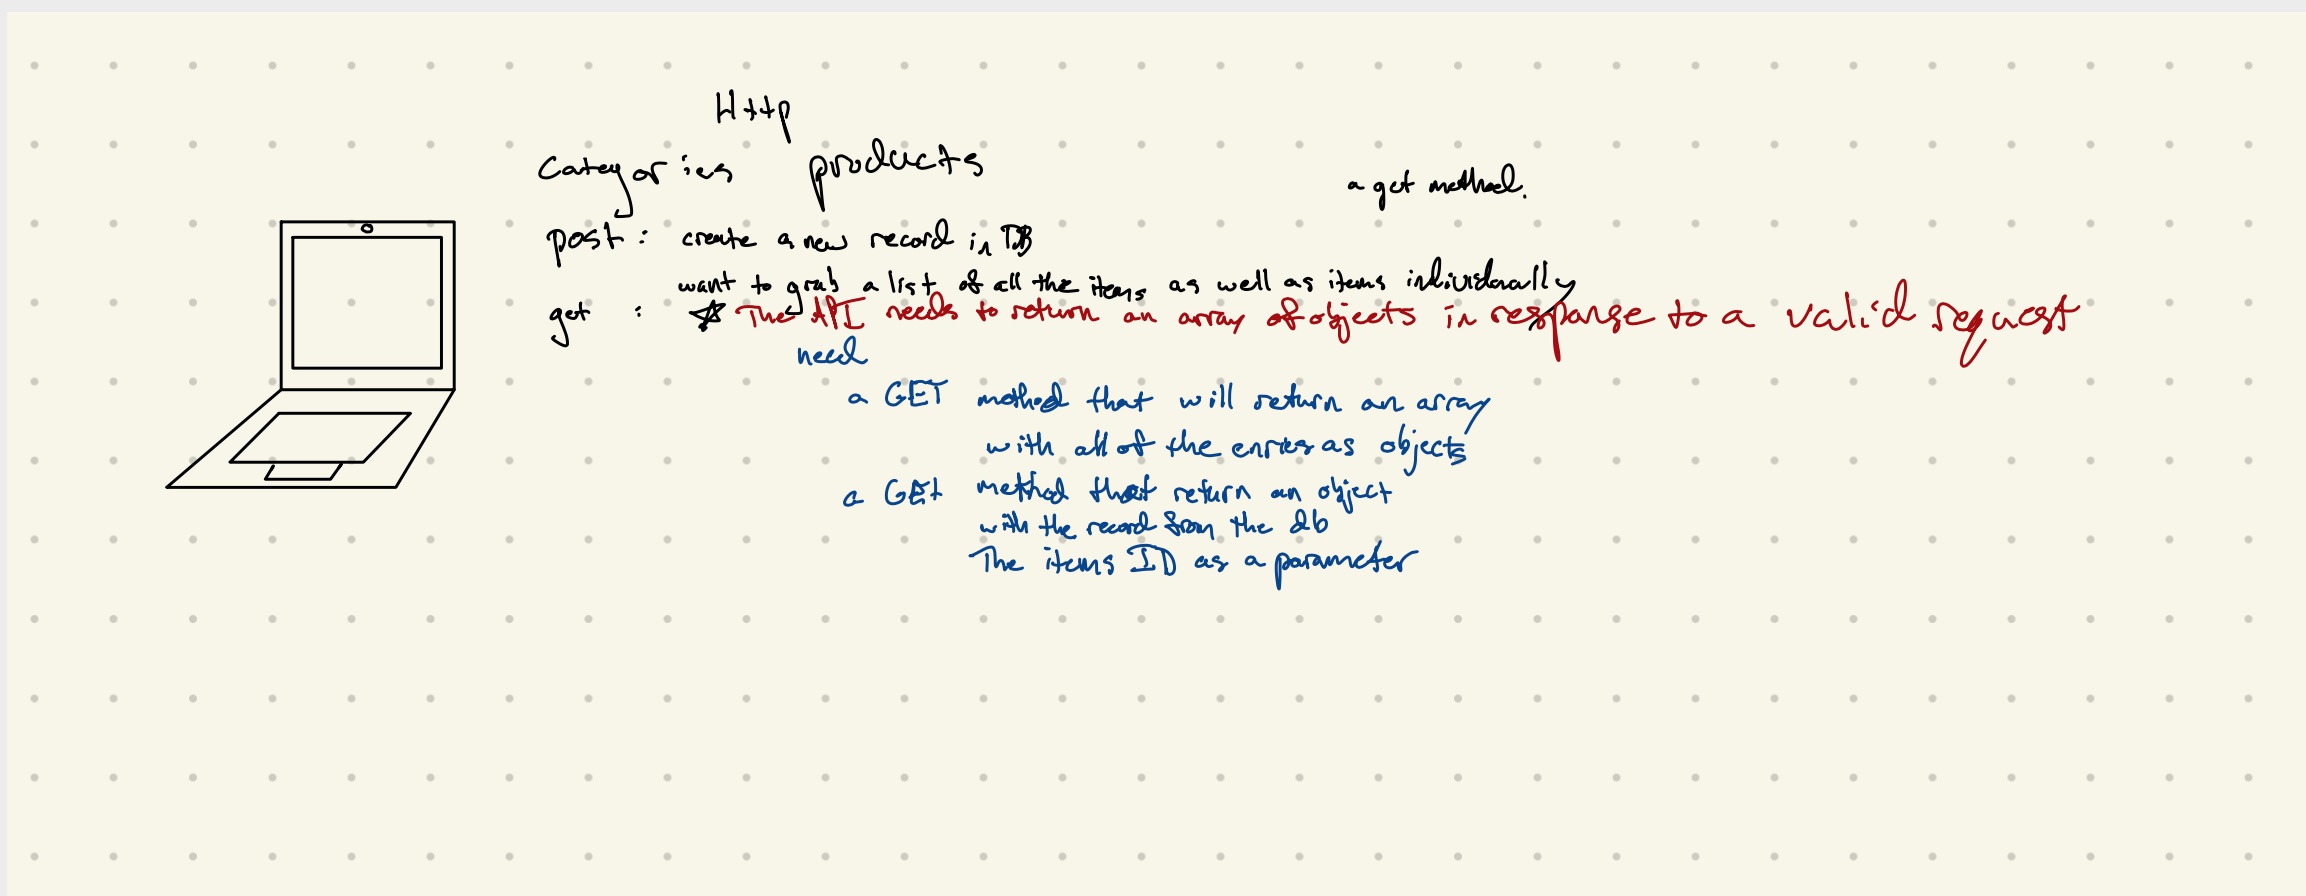 Http
Categories products
a get method.
post : create a new record in DB
want to grab a list of all the items as well as items individually
get : The API needs to return an array of objects in response to a valid request
need
a GET method that will return an array
with all of the enries as objects
a GEt method that return an object
with the record from the db
The items ID as a parameter